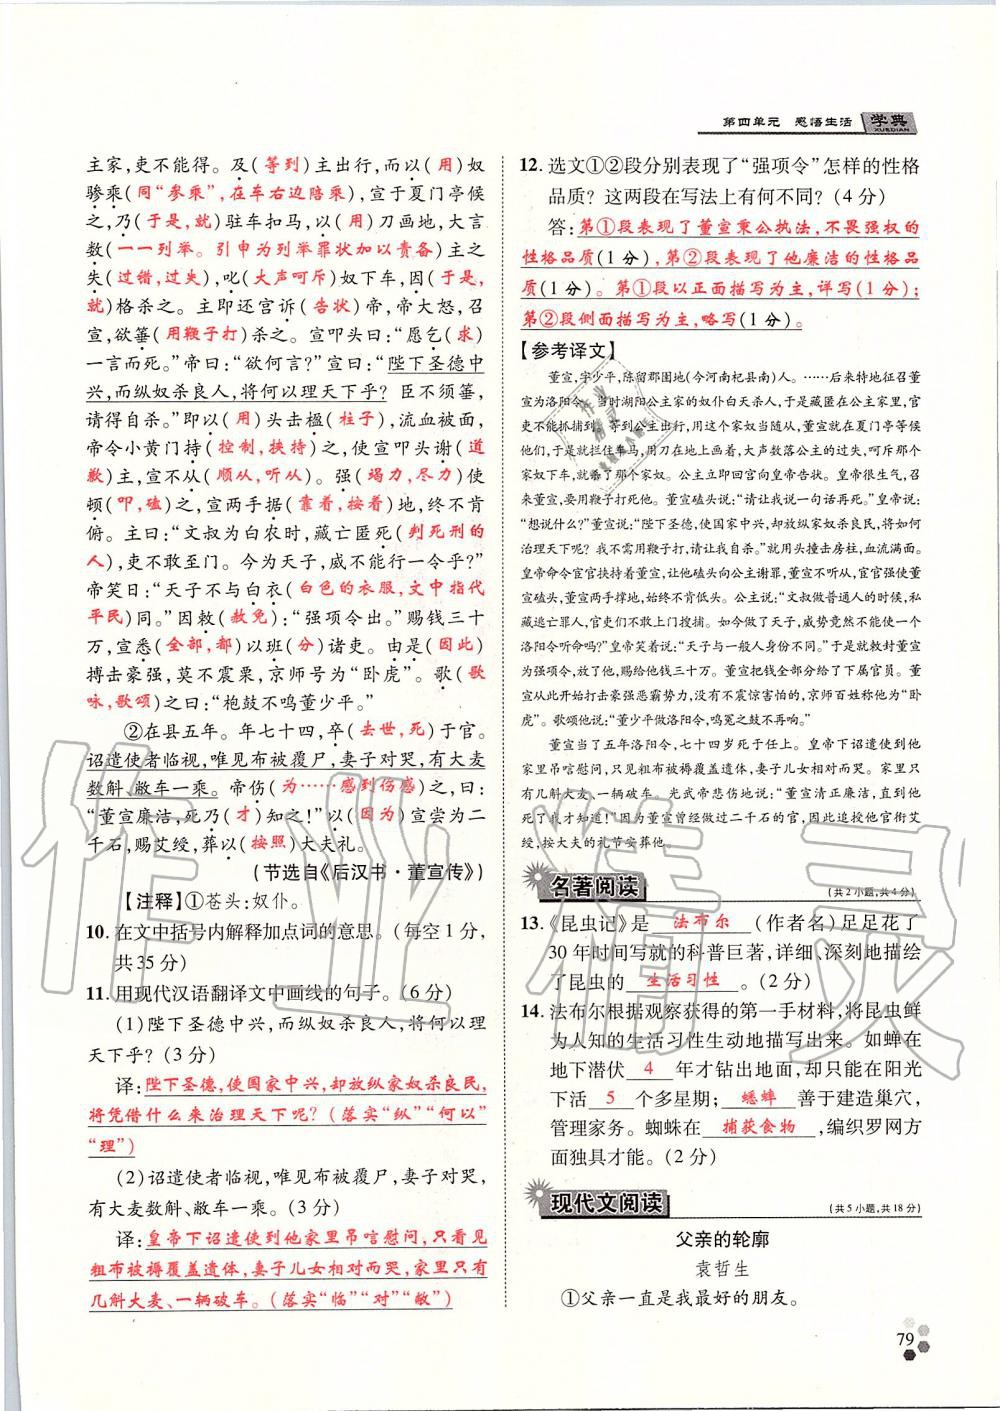 第四单元 感悟生活 学典
XUEDIAN
主家,吏不能得。及(等到)主出行,而以(用)奴
骖乘(同“参乘”,在车右边陪乘)。宣于夏门亭候
之,乃(于是,就)驻车扣马,以(用)刀画地,大言
数(一一列举。引申为列举罪状加以责备)主之
失(过错,过失),叱(大声呵斥)奴下车,因(于是,
就)格杀之。主即还宫诉(告状)帝,帝大怒,召
宣,欲箠(用鞭子打)杀之。宣叩头曰:“愿乞(求)
一言而死。”帝曰:“欲何言?”宣曰:“陛下圣德中
兴,而纵奴杀良人,将何以理天下乎?臣不须箠,
请得自杀。”即以(用)头击楹(柱子),流血被面,
帝令小黄门持(控制,挟持)之,使宣叩头谢(道
歉)主,宣不从(顺从,听从)。强(竭力,尽力)使
顿(叩,磕)之,宣两手据(靠着,按着)地,终不肯
俯。主曰:“文叔为白衣时,藏亡匿死(判死刑的
人),吏不敢至门。今为天子,威不能行一令乎?”
帝笑曰:“天子不与白衣(白色的衣服,文中指代
平民)同。”因敕(赦免):“强项令出。”赐钱三十
万,宣悉(全部,都)以班(分)诸吏。由是(因此)
搏击豪强,莫不震栗,京师号为“卧虎”。歌(歌
咏,歌颂)之曰:“枹鼓不鸣董少平。”
②在县五年。年七十四,卒(去世,死)于官。
诏遣使者临视,唯见布被覆尸,妻子对哭,有大麦
数斛、敝车一乘。帝伤(为……感到伤感)之,曰:
“董宣廉洁,死乃(才)知之!”以(因为)宣尝为二
千石,赐艾绶,葬以(按照)大夫礼。
(节选自《后汉书·董宣传》)
【注释】①苍头:奴仆。
10. 在文中括号内解释加点词的意思。(每空1分,
共35分)
11. 用现代汉语翻译文中画线的句子。(6分)
(1)陛下圣德中兴,而纵奴杀良人,将何以理
天下乎?(3分)
译:陛下圣德,使国家中兴,却放纵家奴杀良民,
将凭借什么来治理天下呢?(落实“纵”“何以”
“理”)
(2)诏遣使者临视,唯见布被覆尸,妻子对哭,
有大麦数斛、敝车一乘。(3分)
译:皇帝下诏遣使到他家里吊唁慰问,只看见
粗布被褥覆盖遗体,妻子儿女相对而哭,家里只有
几斛大麦、一辆破车。(落实“临”“对”“敝”)
12. 选文①②段分别表现了“强项令”怎样的性格
品质?这两段在写法上有何不同?(4分)
答:第①段表现了董宣秉公执法,不畏强权的
性格品质(1分),第②段表现了他廉洁的性格品
质(1分)。第①段以正面描写为主,详写(1分);
第②段侧面描写为主,略写(1分)。
【参考译文】
董宣,字少平,陈留郡圉地(今河南杞县南)人。……后来特地征召董
宣为洛阳令。当时湖阳公主家的奴仆白天杀人,于是藏匿在公主家里,官
吏不能抓捕到。等到公主出门,而用这个家奴当随从,董宣在夏门亭等候
他们,于是就拦住车马,用刀在地上画着,大声数落公主的过失,呵斥那个
家奴下车,于是就杀了那个家奴。公主立即回宫向皇帝告状。皇帝很生气,召
来董宣,要用鞭子打死他。董宣磕头说:“请让我说一句话再死。”皇帝说:
“想说什么?”董宣说:“陛下圣德,使国家中兴,却放纵家奴杀良民,将如何
治理天下呢?我不需用鞭子打,请让我自杀。”就用头撞击房柱,血流满面。
皇帝命令宦官扶持着董宣,让他磕头向公主谢罪,董宣不听从,宦官强使
董宣磕头,董宣两手撑地,始终不肯低头。公主说:“文叔做普通人的时候,私
藏逃亡罪人,官吏们不敢上门搜捕。如今做了天子,威势竟然不能使一个
洛阳令听命吗?”皇帝笑着说:“天子与一般人身份不同。”于是就敕封董宣
为强项令,放了他,赐给他钱三十万。董宣把钱全部分给了下属官员。董
宣从此开始打击豪强恶霸势力,没有不震惊害怕的,京师百姓称他为“卧
虎”。歌颂他说:“董少平做洛阳令,鸣冤之鼓就不响。”
董宣当了五年洛阳令,七十四岁死于任上。皇帝下诏遣使到他
家里吊唁慰问,只看见粗布被褥覆盖遗体,妻子儿女相对而哭。家里只
有几斛大麦、一辆破车。光武帝悲伤地说:“董宣清正廉洁,到他死了我
死了我才知道!”因为董宣曾经做过二千石的官,因此追授他官衔艾
绶,按大夫的礼节安葬他。
名著阅读 (共2小题,共4分)
13. 《昆虫记》是 法布尔 (作者名)足足花了
30年时间写就的科普巨著,详细、深刻地描绘
了昆虫的 生活习性 。(2分)
14. 法布尔根据观察获得的第一手材料,将昆虫鲜
为人知的生活习性生动地描写出来。如蝉在
地下潜伏 4 年才钻出地面,却只能在阳光
下活 5 个多星期; 蟋蟀 善于建造巢穴,
管理家务。蜘蛛在 捕获食物 ,编织罗网方
面独具才能。(2分)
现代文阅读 (共5小题,共18分)
父亲的轮廓
袁哲生
①父亲一直是我最好的朋友。
79
作业精灵